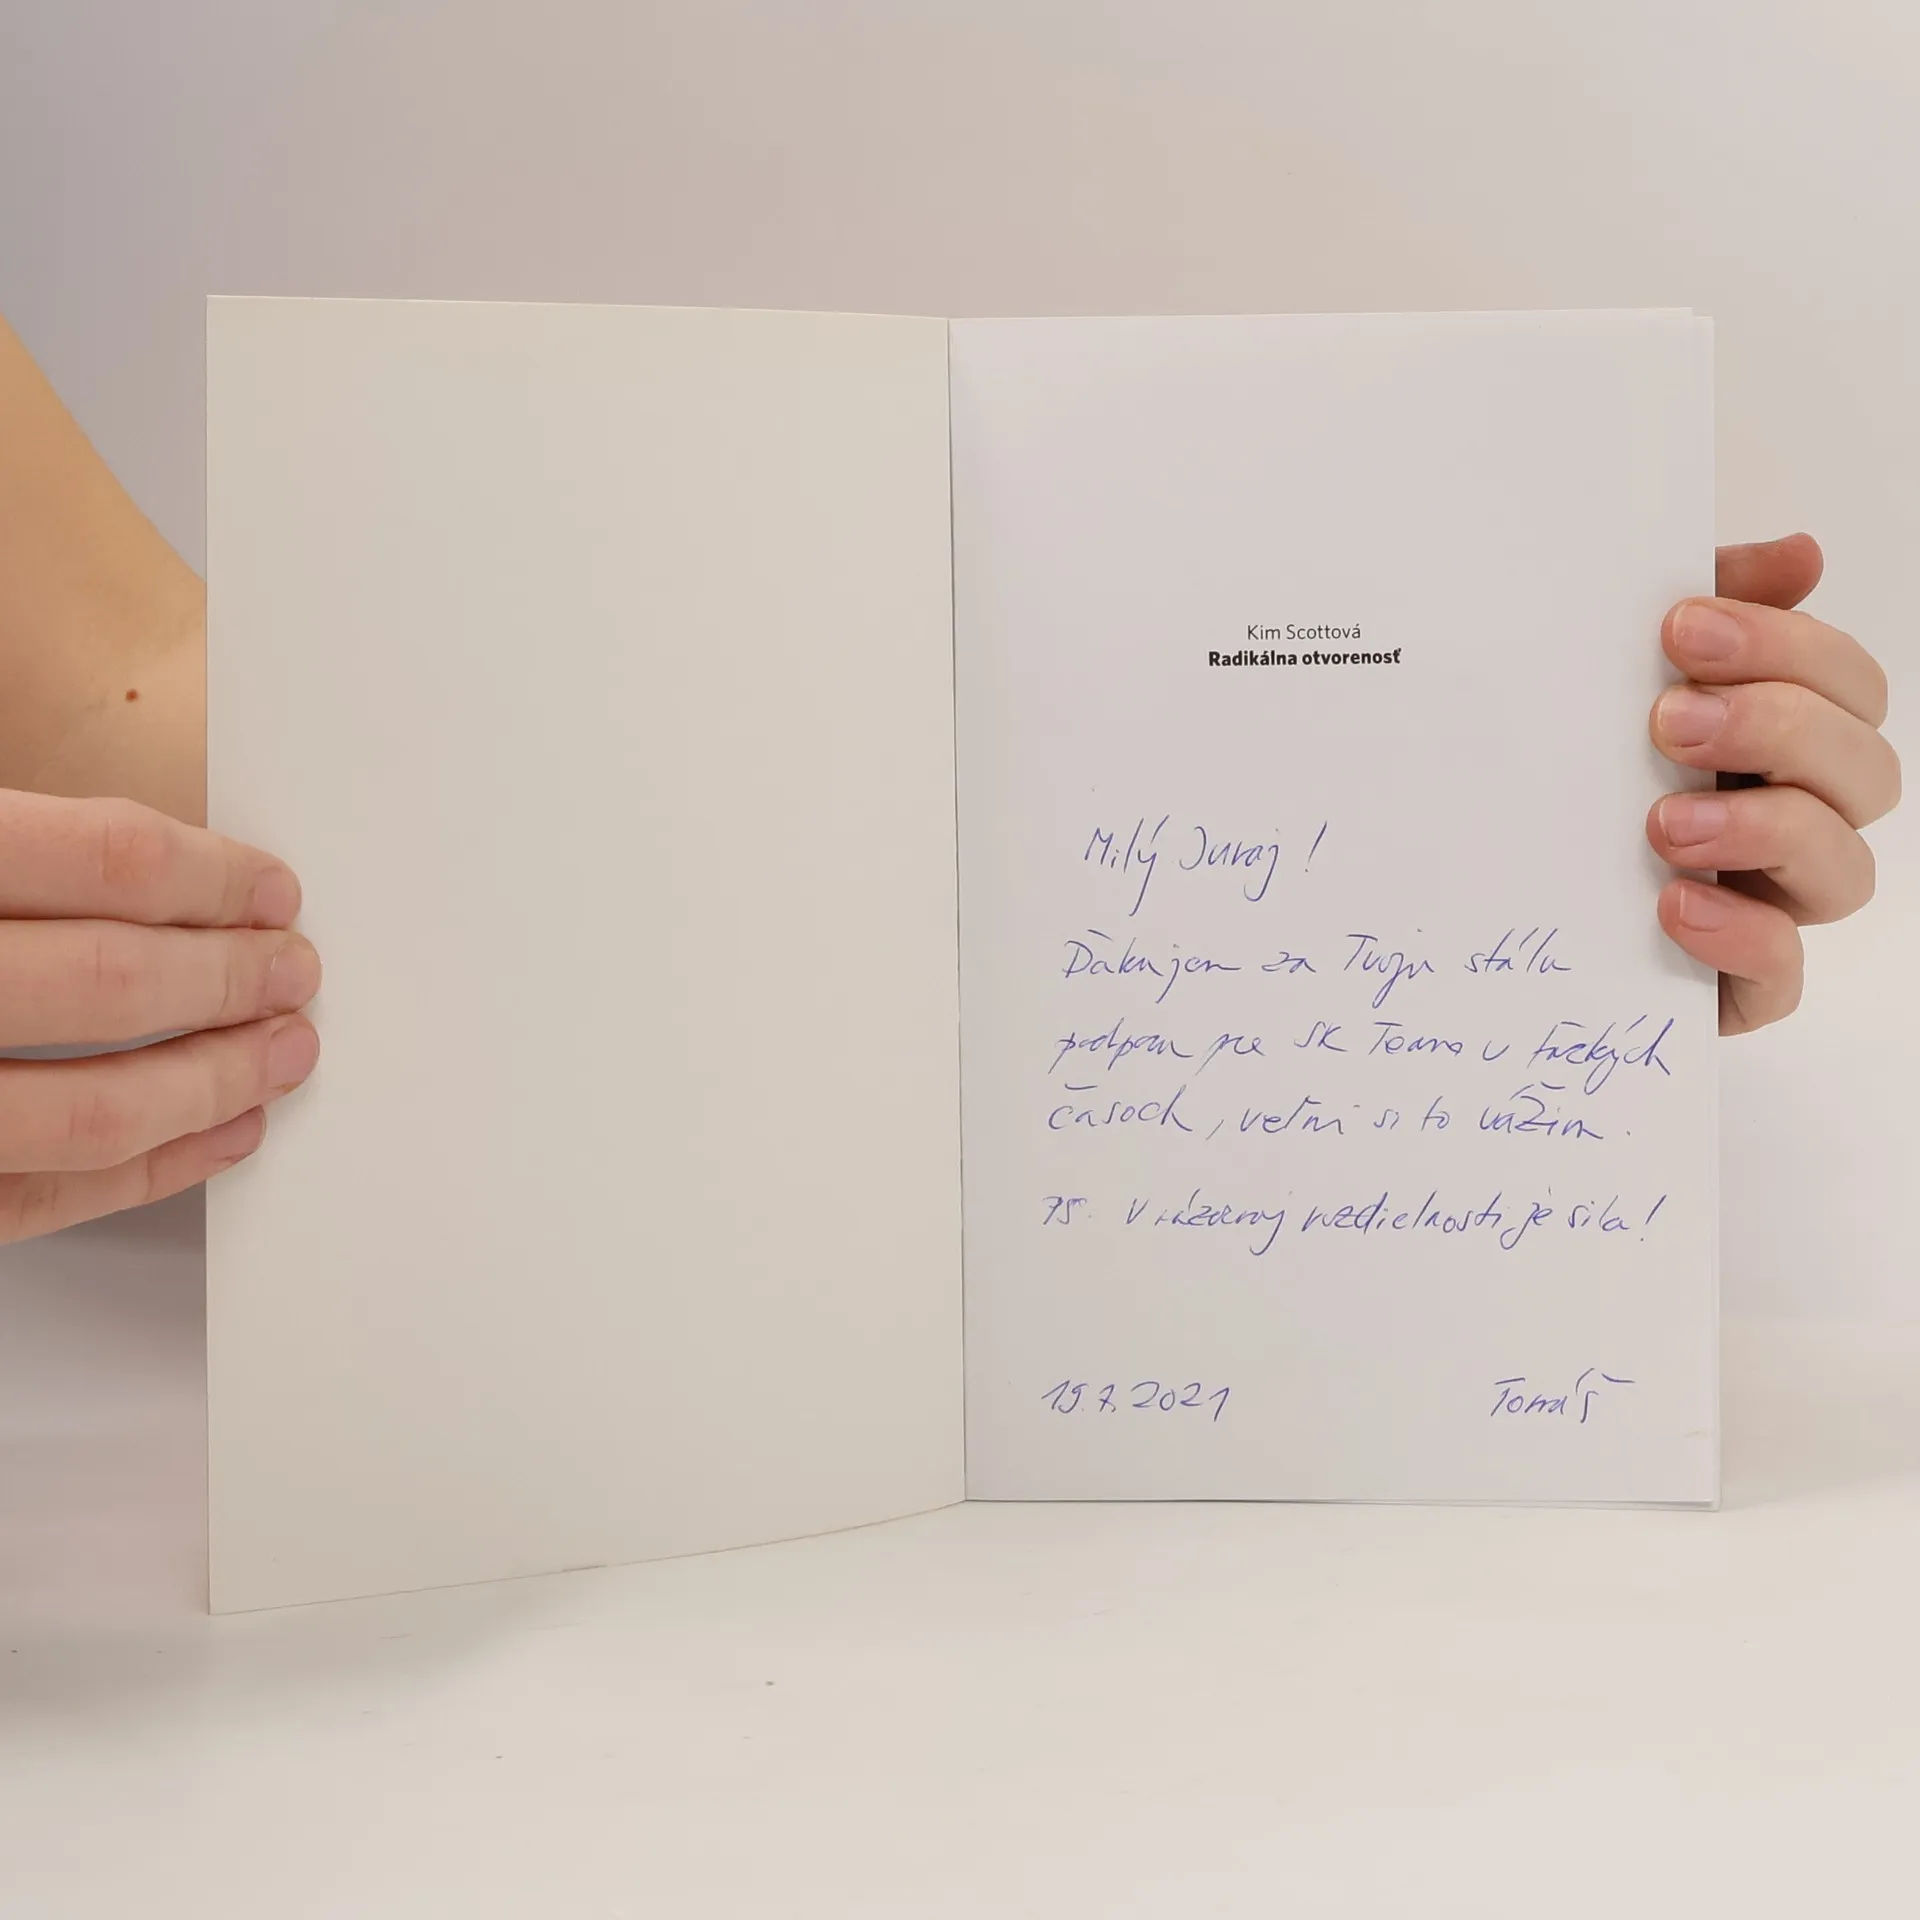 Kim Scottová
Radikálna otvorenosť
Milý Juraj!
Ďakujem za Tvoju stálu
podporu pre SK Teamo v ťažkých
časoch, veľmi si to vážim.
PS. V názorovej rozdielnosti je sila!
19.7.2021 Tomáš